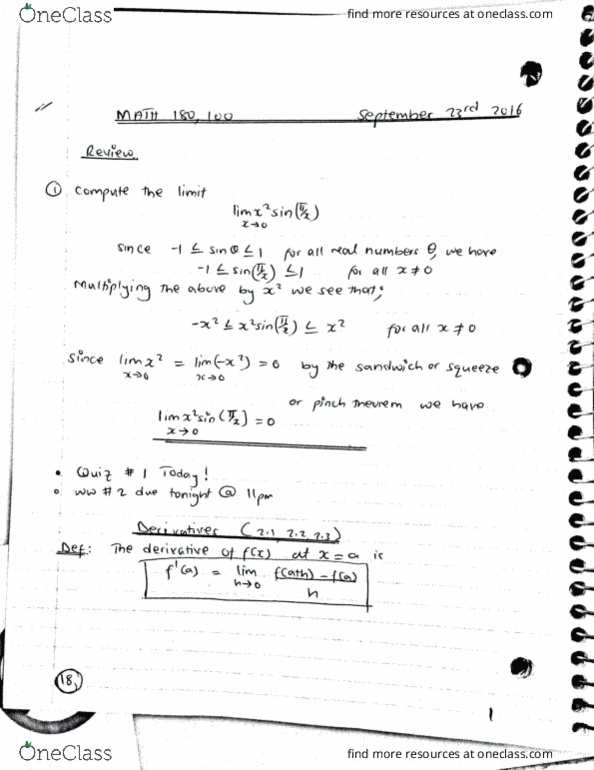 OneClass
find more resources at oneclass.com
MATH 180, 100 September 23rd 2016
Review
① Compute the limit
lim x² sin(π/x)
x→0
Since -1 ≤ sin θ ≤ 1 for all real numbers θ, we have
-1 ≤ sin(π/x) ≤ 1 for all x ≠ 0
Multiplying the above by x² we see that;
-x² ≤ x² sin(π/x) ≤ x² for all x ≠ 0
Since lim x² = lim(-x²) = 0 by the sandwich or squeeze
x→0 x→0
or pinch theorem we have
lim x² sin(π/x) = 0
x→0
• Quiz # 1 Today!
• WW # 2 due tonight @ 11pm
Derivatives (2.1, 2.2, 2.3)
Def: The derivative of f(x) at x = a is
f'(a) = lim f(a+h) - f(a)
h→0 h
18
1
OneClass
find more resources at oneclass.com